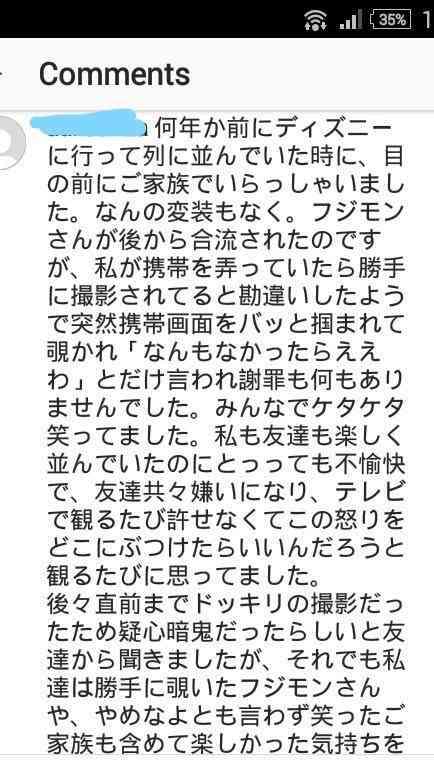 35%
1
Comments
何年か前にディズニー
に行って列に並んでいた時に、目
の前にご家族でいらっしゃいまし
た。なんの変装もなく。フジモン
さんが後から合流されたのです
が、私が携帯を弄っていたら勝手
に撮影されてると勘違いしたよう
で突然携帯画面をバッと掴まれて
覗かれ「なんもなかったらええ
わ」とだけ言われ謝罪も何もあり
ませんでした。みんなでケタケタ
笑ってました。私も友達も楽しく
並んでいたのにとっっても不愉快
で、友達共々嫌いになり、テレビ
で観るたび許せなくてこの怒りを
どこにぶつけたらいいんだろうと
観るたびに思ってました。
後々直前までドッキリの撮影だっ
たため疑心暗鬼だったらしいと友
達から聞きましたが、それでも私
達は勝手に覗いたフジモンさん
や、やめなよとも言わず笑ったご
家族も含めて楽しかった気持ちを